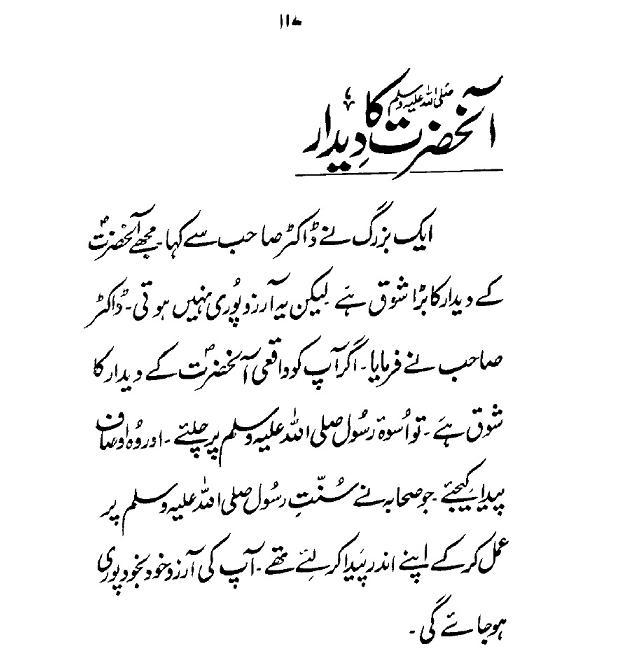 ۱۱۷
آنحضرت صلی اللہ علیہ وسلم کا دیدار
ایک بزرگ نے ڈاکٹر صاحب سے کہا۔ مجھے آنحضرتؐ
کے دیدار کا بڑا شوق ہے لیکن یہ آرزو پُوری نہیں ہوتی۔ ڈاکٹر
صاحب نے فرمایا۔ اگر آپ کو واقعی آنحضرتؐ کے دیدار کا
شوق ہے۔ تو اسوۂ رسُول صلی اللہ علیہ وسلم پر چلئے۔ اور وُہ اوصاف
پیدا کیجئے جو صحابہ نے سُنّتِ رسُول صلی اللہ علیہ وسلم پر
عمل کر کے اپنے اندر پَیدا کر لِئے تھے۔ آپ کی آرزو خود بخود پوری
ہو جائے گی۔